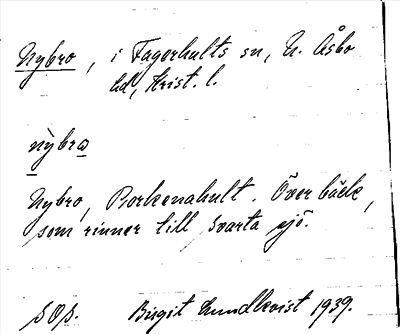 Nybro, i Fagerhults sn, N. Åsbo
hd, Krist. l.
nỳbro
Nybro, Porkenahult. Över bäck,
som rinner till Svarta sjö.
SOS. Birgit Lundkvist 1939.